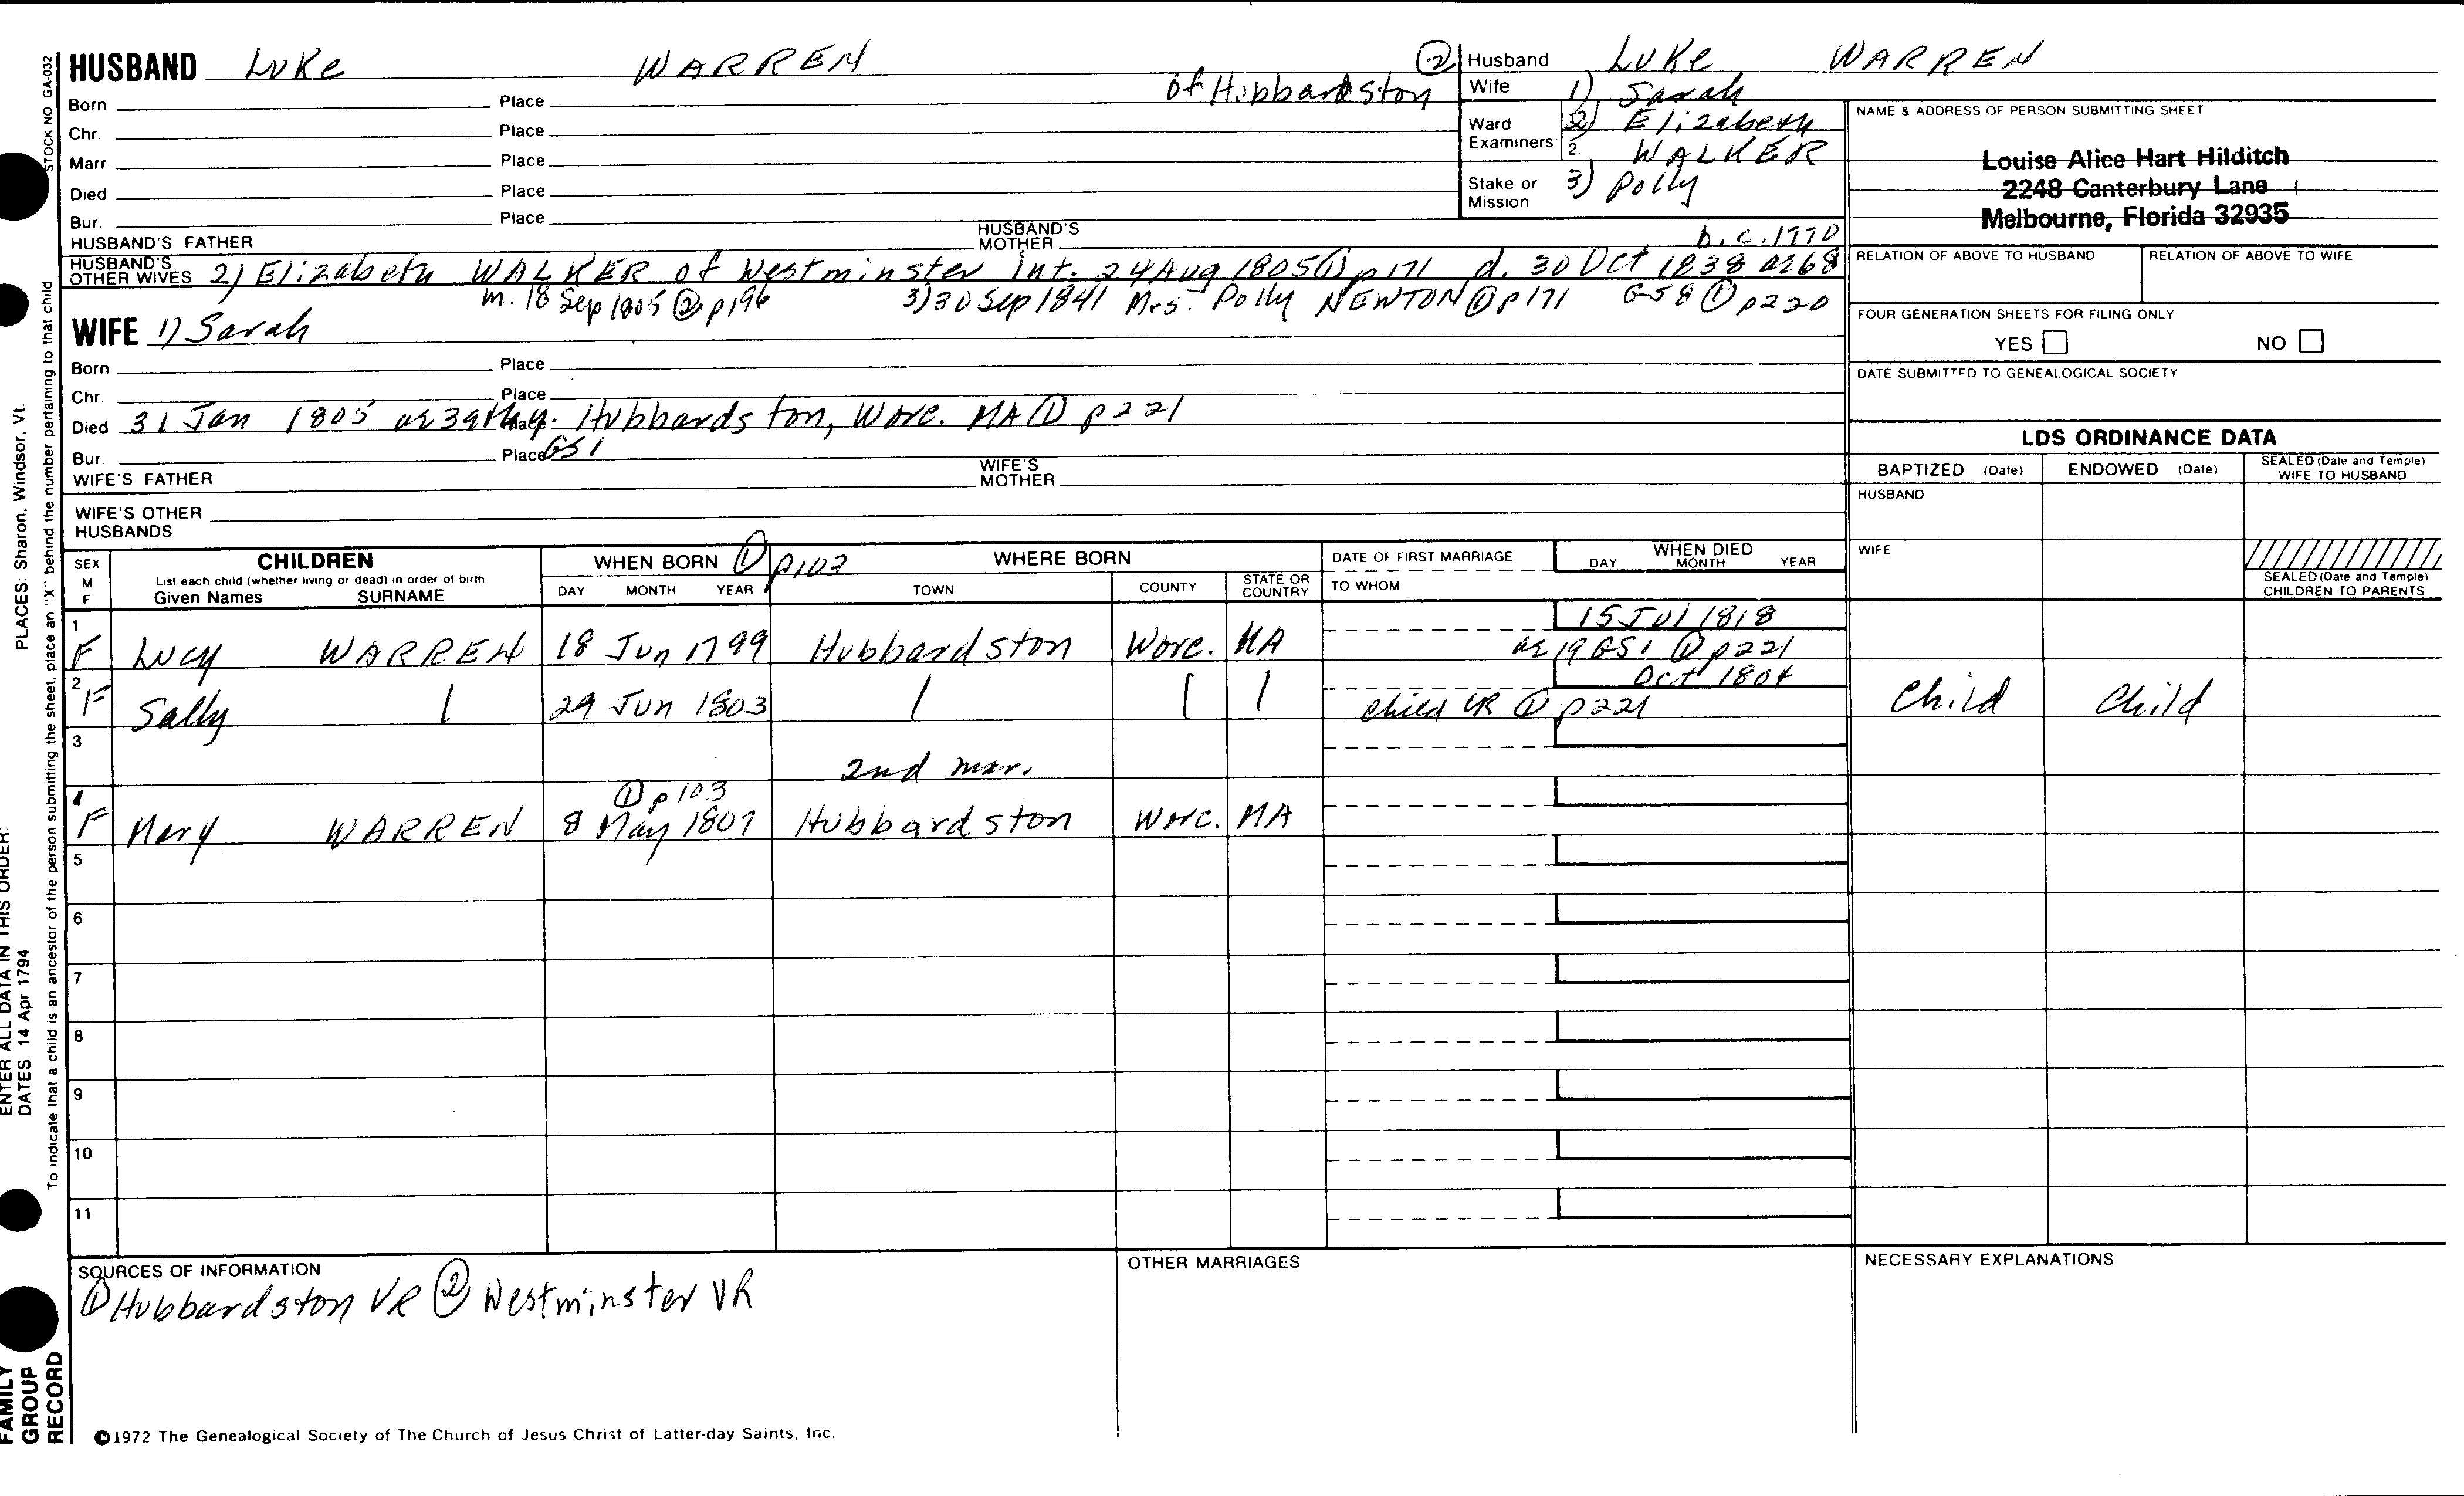 HUSBAND Luke WARREN
of Hubbardston ②
Born Place
Chr. Place
Marr. Place
Died Place
Bur. Place
HUSBAND'S FATHER HUSBAND'S MOTHER
b.c. 1770
HUSBAND'S OTHER WIVES 2) Elizabeth WALKER of Westminster int. 24 Aug 1805 ① p171 d. 30 Oct 1838 ae 68
m. 18 Sep 1805 ② p196 3) 30 Sep 1841 Mrs. Polly NEWTON ① p171 GS8 ① p220
WIFE 1) Sarah
Born Place
Chr. Place
Died 31 Jan 1805 Place Hubbardston, Worc. MA ① p221
Bur. Place GS1
WIFE'S FATHER WIFE'S MOTHER
WIFE'S OTHER HUSBANDS
Husband Luke WARREN
Wife 1) Sarah
Ward Examiners: 2) Elizabeth
2. WALKER
Stake or Mission 3) Polly
NAME & ADDRESS OF PERSON SUBMITTING SHEET
Louise Alice Hart Hilditch
2248 Canterbury Lane
Melbourne, Florida 32935
RELATION OF ABOVE TO HUSBAND RELATION OF ABOVE TO WIFE
FOUR GENERATION SHEETS FOR FILING ONLY
YES NO
DATE SUBMITTED TO GENEALOGICAL SOCIETY
LDS ORDINANCE DATA
BAPTIZED (Date) ENDOWED (Date) SEALED (Date and Temple) WIFE TO HUSBAND
HUSBAND
WIFE
SEALED (Date and Temple) CHILDREN TO PARENTS
SEX M F
CHILDREN
List each child (whether living or dead) in order of birth
Given Names SURNAME
WHEN BORN ① p103
DAY MONTH YEAR
WHERE BORN
TOWN COUNTY STATE OR COUNTRY
DATE OF FIRST MARRIAGE
TO WHOM
WHEN DIED
DAY MONTH YEAR
1 F Lucy WARREN 18 Jun 1799 Hubbardston Worc. MA 15 Jul 1818
ae 19 GS1 ① p221
2 F Sally | 29 Jun 1803 | | | Oct 1804
child VR ① p221 Child Child
3
2nd mar.
① p103
4 F Mary WARREN 8 May 1807 Hubbardston Worc. MA
5
6
7
8
9
10
11
SOURCES OF INFORMATION
① Hubbardston VR ② Westminster VR
OTHER MARRIAGES
NECESSARY EXPLANATIONS
©1972 The Genealogical Society of The Church of Jesus Christ of Latter-day Saints, Inc.
STOCK NO GA-032
PLACES: Sharon, Windsor, Vt.
To indicate that a child is an ancestor of the person submitting the sheet, place an "X" behind the number pertaining to that child
ENTER ALL DATA IN THIS ORDER:
DATES: 14 Apr 1794
FAMILY GROUP RECORD